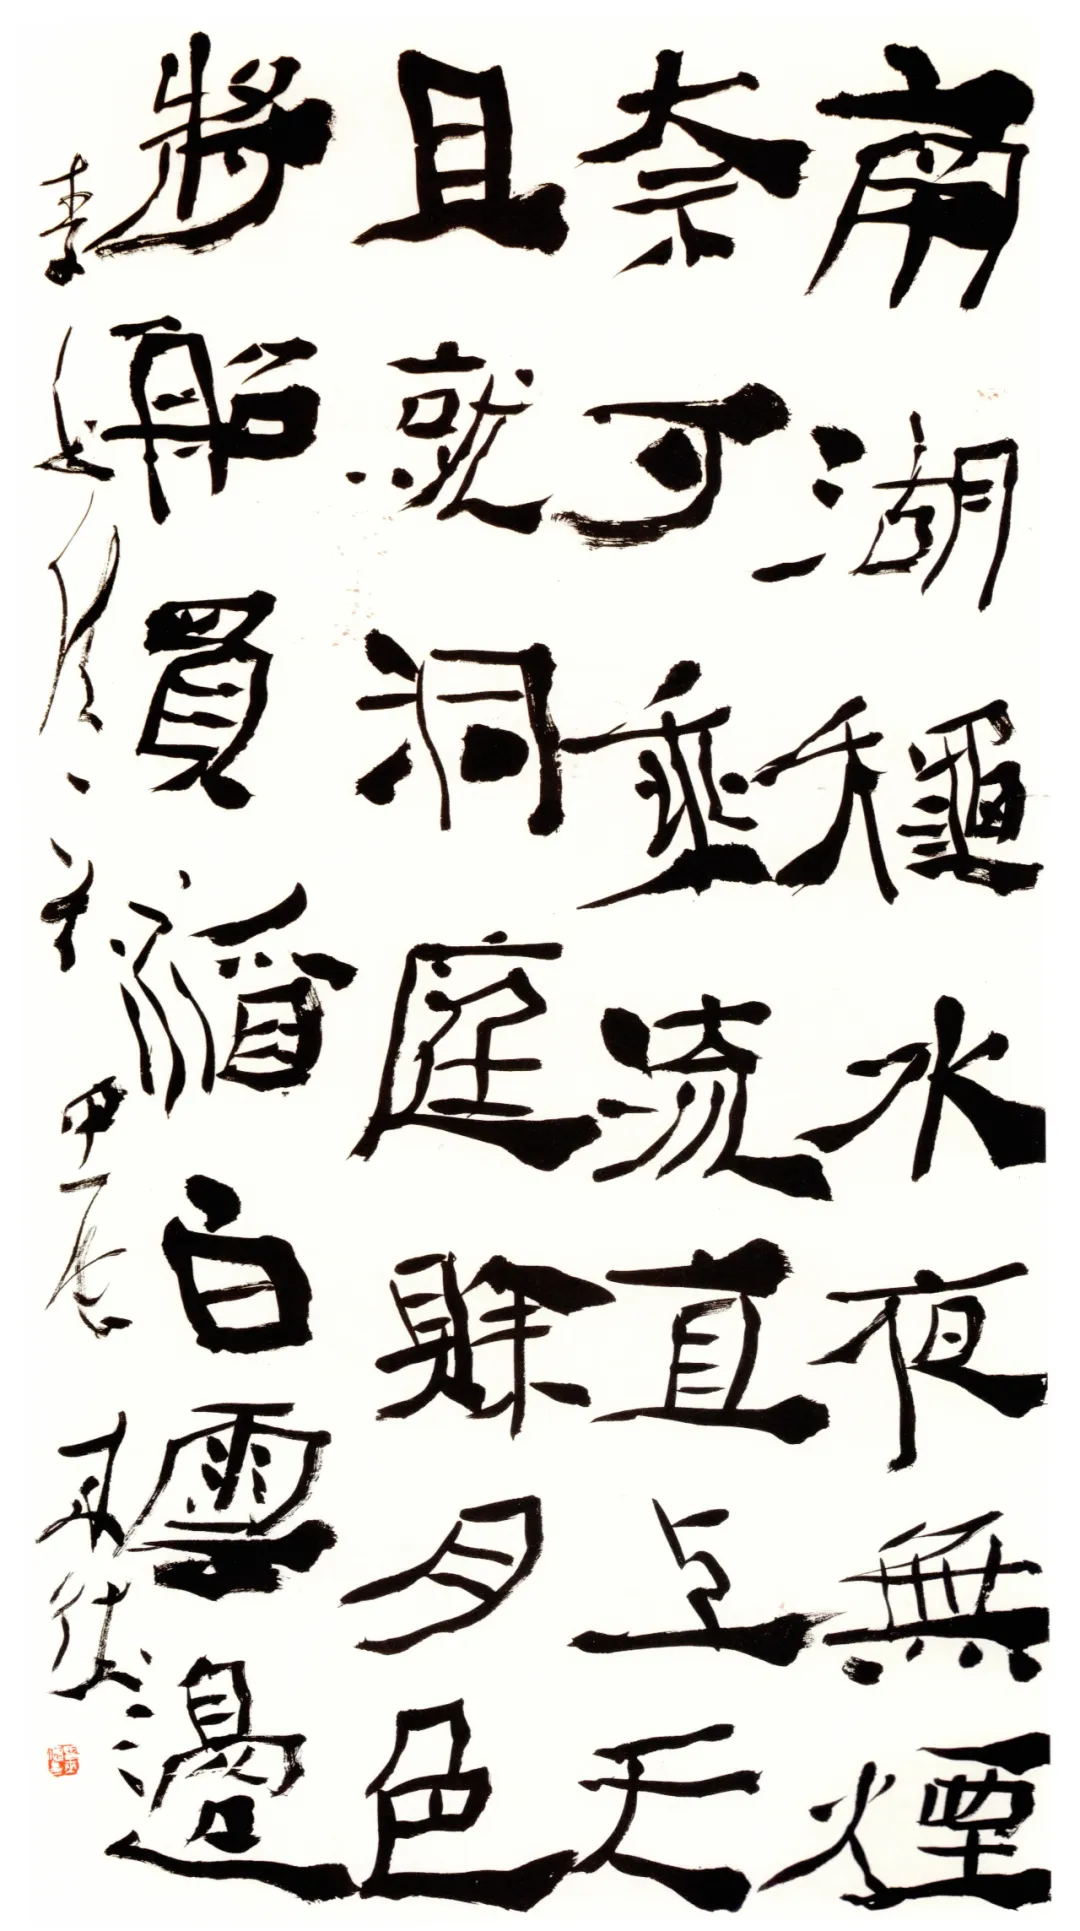 南湖穐水夜無煙
奈可乘流直上天
且就洞庭賒月色
將船買酒白雲邊
李 甲辰